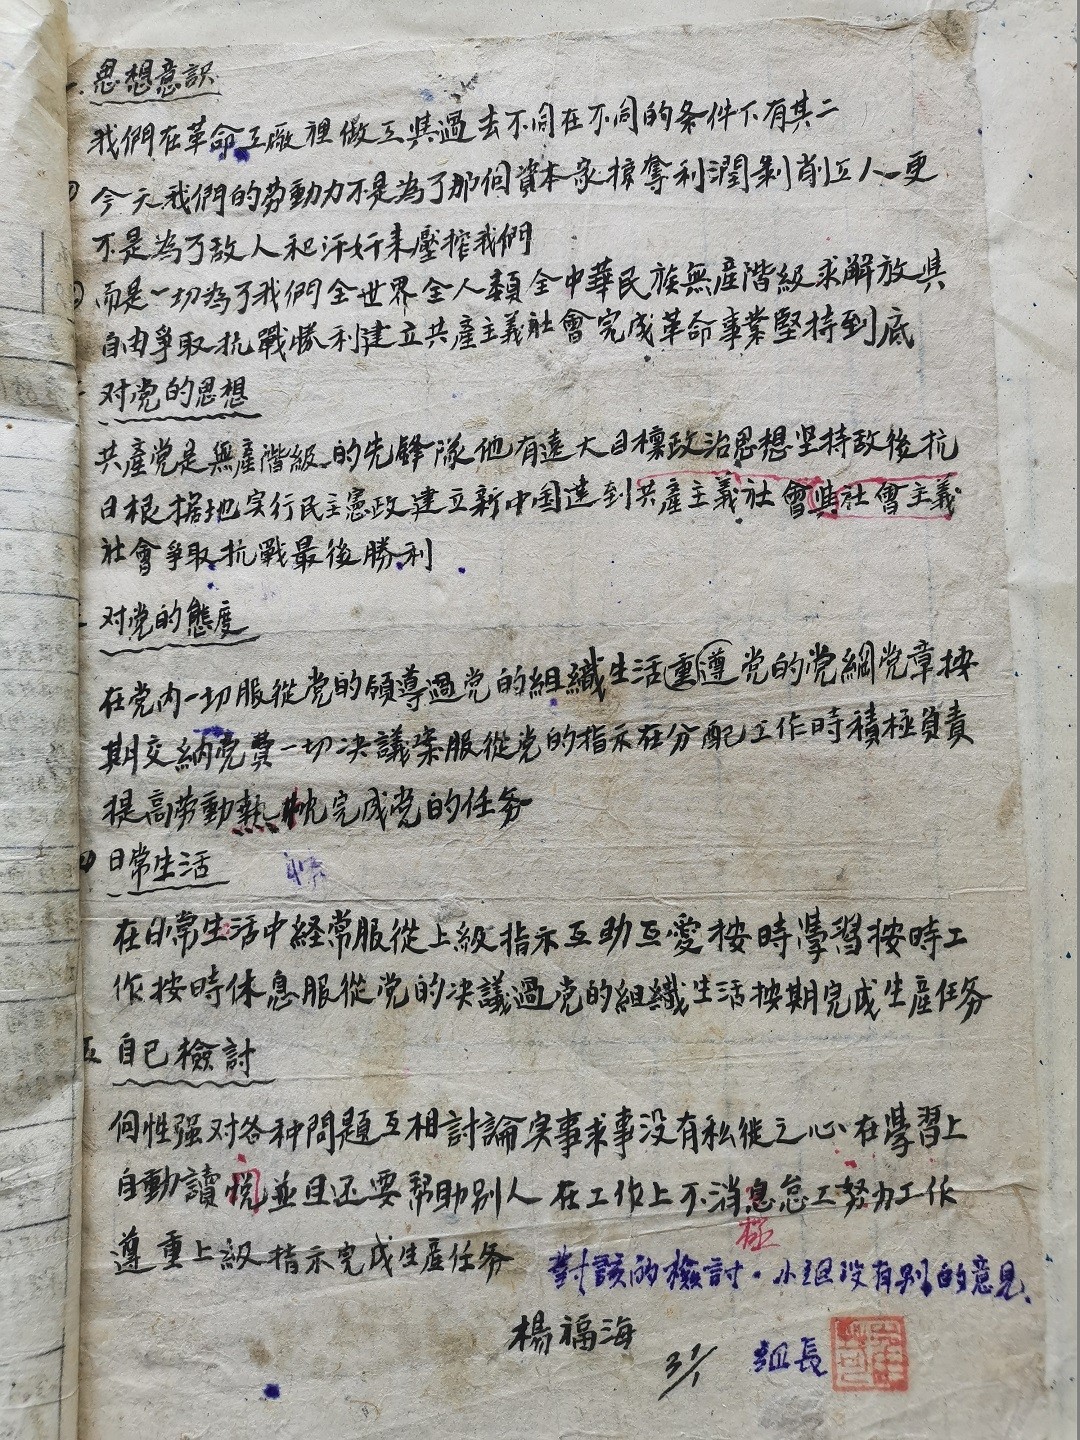 思想意訳
我們在革命工廠裡做工與過去不同在不同的条件下有其二
今天我們的劳動力不是為了那個資本家掠奪利潤剝削工人一更
不是為了敌人和汗奸来壓搾我們
而是一切為了我們全世界全人類全中華民族無產階級求解放與
自由爭取抗戰勝利建立共產主義社會完成革命事業堅持到底
对党的思想
共產党是無產階級的先鋒隊他有遠大目標政治思想坚持敌後抗
日根据地实行民主憲政建立新中国達到共產主義社會與社會主義
社會爭取抗戰最後勝利
对党的態度
在党內一切服從党的領導過党的組織生活重遵党的党綱党章按
期交納党費一切决議案服從党的指示在分配工作時積極負責
提高劳動熱忱完成党的任务
日常生活
情
在日常生活中経常服從上級指示互助互愛按時學習按時工
作按時休息服從党的决議過党的組織生活按期完成生產任务
五 自己檢討
個性强对各种問題互相討論实事求事没有私從之心在學習上
自動讀悅並且还要幫助別人在工作上不消息怠工努力工作
極
遵重上級指示完成生產任务
對該的檢討。小組没有别的意見、
楊福海
3/1
組長